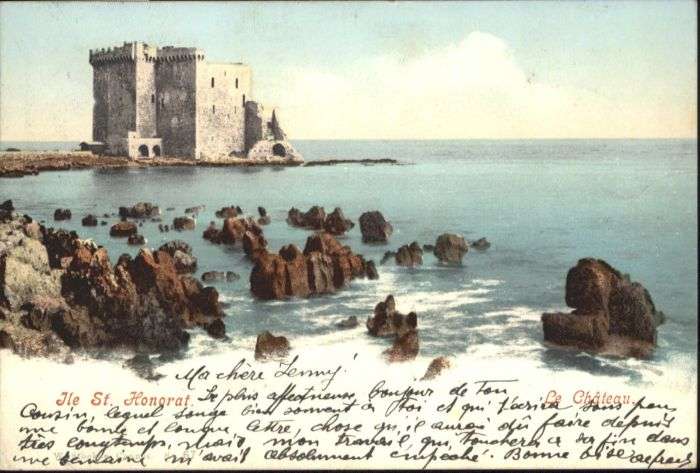 Ma chère Jenny!
Ile St. Honorat. Le plus affectueux bonjour de ton Le Château.
Cousin, lequel songe bien souvent à toi et qui t'écrira sous peu
une bonne et longue lettre, chose qu'il aurait dû faire depuis
très longtemps, mais, mon travail, qui touchera à sa fin dans
une semaine m'avait absolument empêché. Bonne bise